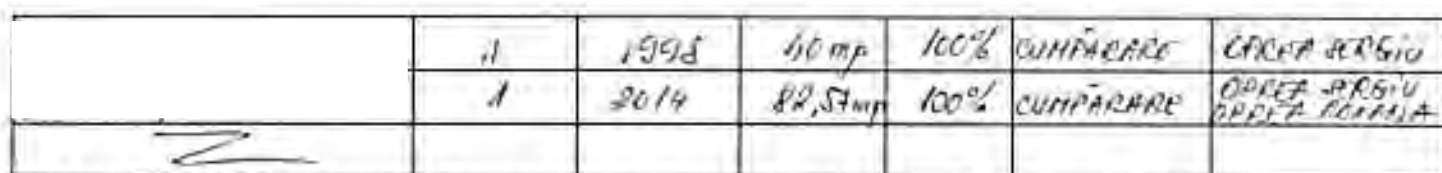 1 1998 40 mp 100% CUMPĂRARE OPREA SERGIU
1 2014 82,57mp 100% CUMPĂRARE OPREA SERGIU
OPREA